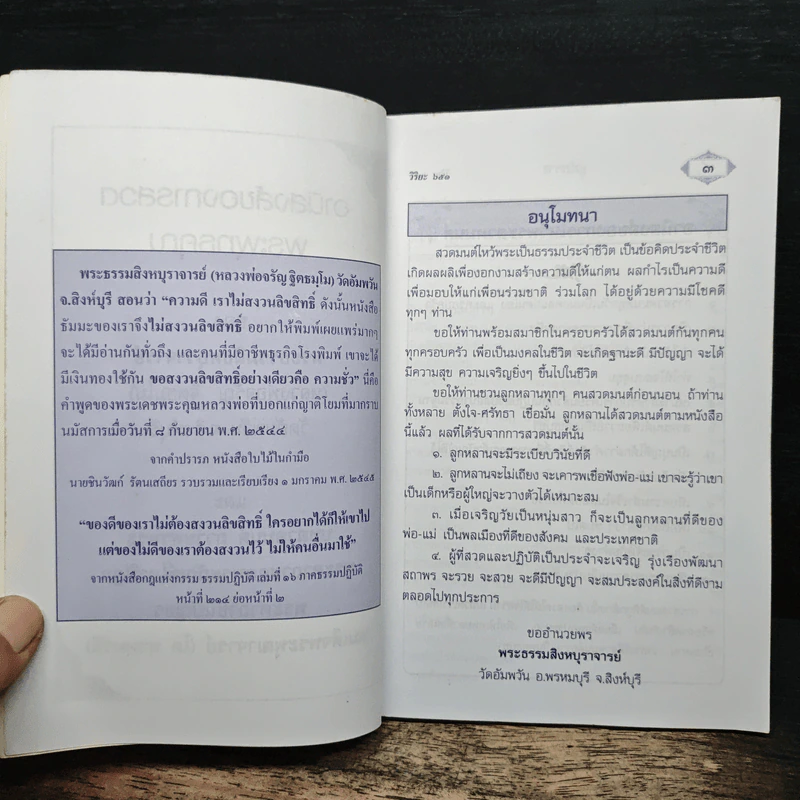 พระธรรมสิงหบุราจารย์ (หลวงพ่อจรัญ ฐิตธมฺโม) วัดอัมพวัน
จ.สิงห์บุรี สอนว่า “ความดี เราไม่สงวนลิขสิทธิ์ ดังนั้นหนังสือ
ธัมมะของเราจึงไม่สงวนลิขสิทธิ์ อยากให้พิมพ์เผยแพร่มากๆ
จะได้มีอ่านกันทั่วถึง และคนที่มีอาชีพธุรกิจโรงพิมพ์ เขาจะได้
มีเงินทองใช้กัน ขอสงวนลิขสิทธิ์อย่างเดียวคือ ความชั่ว” นี่คือ
คำพูดของพระเดชพระคุณหลวงพ่อที่บอกแก่ญาติโยมที่มากราบ
นมัสการเมื่อวันที่ ๘ กันยายน พ.ศ. ๒๕๔๔
จากคำปรารภ หนังสือใบไม้ในกำมือ
นายชินวัฒก์ รัตนเสถียร รวบรวมและเรียบเรียง ๑ มกราคม พ.ศ. ๒๕๔๕
“ของดีของเราไม่ต้องสงวนลิขสิทธิ์ ใครอยากได้ก็ให้เขาไป
แต่ของไม่ดีของเราต้องสงวนไว้ ไม่ให้คนอื่นมาใช้”
จากหนังสือกฎแห่งกรรม ธรรมปฏิบัติ เล่มที่ ๑๖ ภาคธรรมปฏิบัติ
หน้าที่ ๒๑๔ ย่อหน้าที่ ๒
วิริยะ ๖๕๑
๓
อนุโมทนา
สวดมนต์ไหว้พระเป็นธรรมประจำชีวิต เป็นข้อคิดประจำชีวิต
เกิดผลผลิเพื่องอกงามสร้างความดีให้แก่ตน ผลกำไรเป็นความดี
เพื่อมอบให้แก่เพื่อนร่วมชาติ ร่วมโลก ได้อยู่ด้วยความมีโชคดี
ทุกๆ ท่าน
ขอให้ท่านพร้อมสมาชิกในครอบครัวได้สวดมนต์กันทุกคน
ทุกครอบครัว เพื่อเป็นมงคลในชีวิต จะเกิดฐานะดี มีปัญญา จะได้
มีความสุข ความเจริญยิ่งๆ ขึ้นไปในชีวิต
ขอให้ท่านชวนลูกหลานทุกๆ คนสวดมนต์ก่อนนอน ถ้าท่าน
ทั้งหลาย ตั้งใจ-ศรัทธา เชื่อมั่น ลูกหลานได้สวดมนต์ตามหนังสือ
นี้แล้ว ผลที่ได้รับจากการสวดมนต์นั้น
๑. ลูกหลานจะมีระเบียบวินัยที่ดี
๒. ลูกหลานจะไม่เถียง จะเคารพเชื่อฟังพ่อ-แม่ เขาจะรู้ว่าเขา
เป็นเด็กหรือผู้ใหญ่จะวางตัวได้เหมาะสม
๓. เมื่อเจริญวัยเป็นหนุ่มสาว ก็จะเป็นลูกหลานที่ดีของ
พ่อ-แม่ เป็นพลเมืองที่ดีของสังคม และประเทศชาติ
๔. ผู้ที่สวดและปฏิบัติเป็นประจำจะเจริญ รุ่งเรืองพัฒนา
สถาพร จะรวย จะสวย จะดีมีปัญญา จะสมประสงค์ในสิ่งที่ดีงาม
ตลอดไปทุกประการ
ขออำนวยพร
พระธรรมสิงหบุราจารย์
วัดอัมพวัน อ.พรหมบุรี จ.สิงห์บุรี